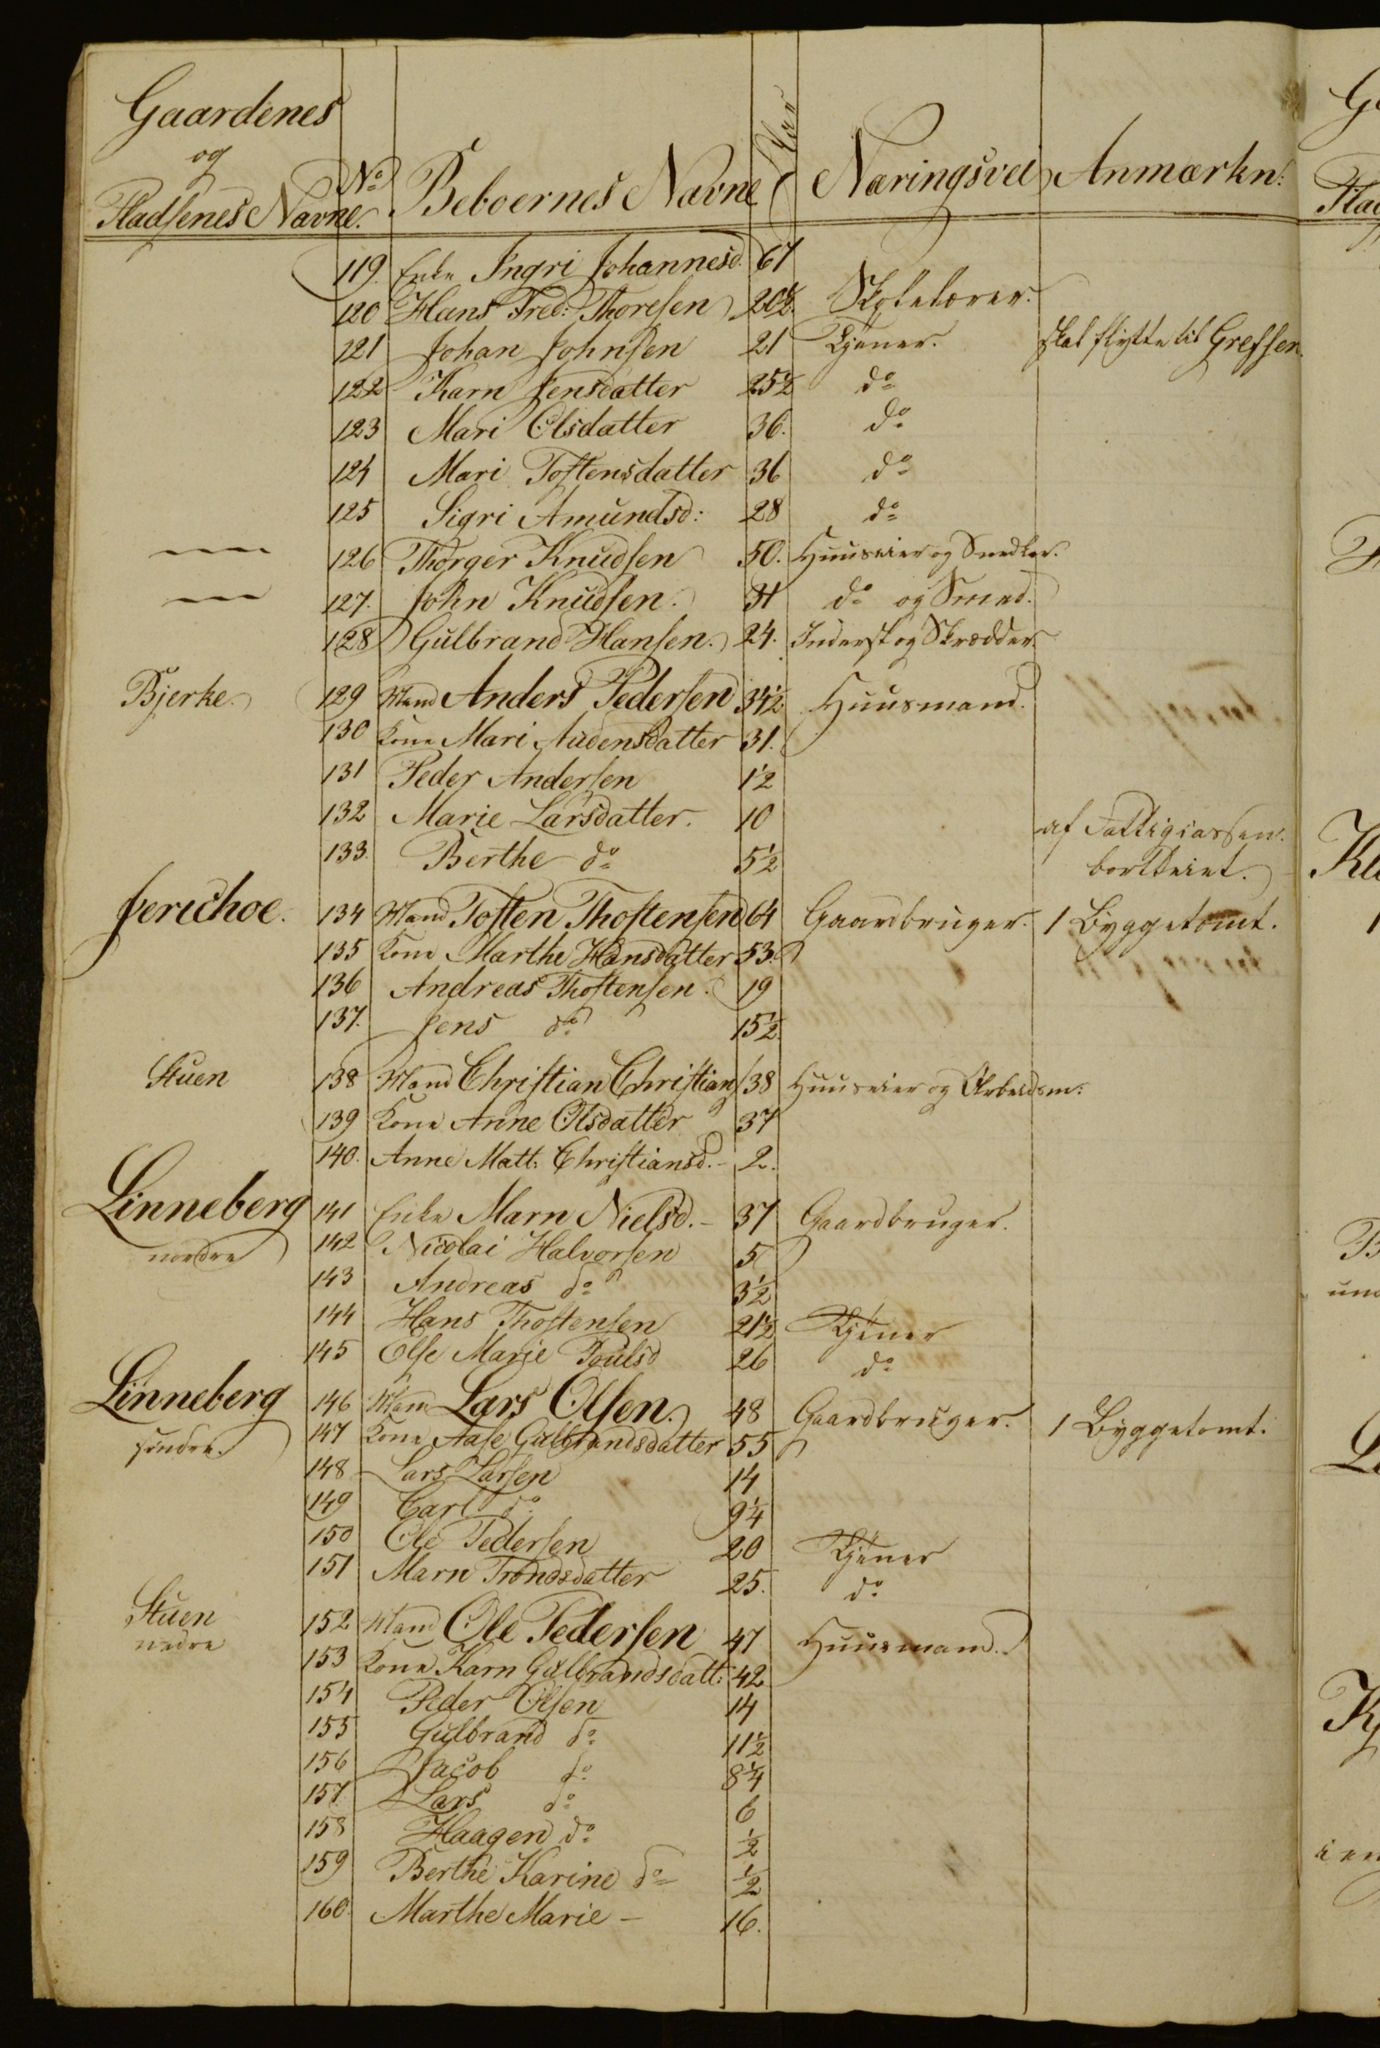 Gaardenes og Pladsenes Navne. No Beboernes Navne Alder Næringsvei Anmærkn:
119. Enke Ingri Johannesd. 67
120 Hans Fred: Thoresen 20½ Skolelærer.
121 Johan Johnsen 21 Tjener. skal flytte til Grefsen.
122 Karn Jensdatter 25½ do
123 Mari Olsdatter 36. do
124 Mari Tostensdatter 36 do
125 Sigri Amundsd: 28 do
126 Thorger Knudsen 50. Huuseier og Snedker.
127. John Knudsen. 31 do og Smed.
128 Gulbrand Hansen. 24. Inderst og Skrædder
Bjerke. 129 Mand Anders Pedersen 34½ Huusmand.
130 Kone Mari Audensdatter 31.
131 Peder Andersen 1½
132 Marie Larsdatter. 10 af Fattigcassen
133. Berthe do 5½ bortleiet.
Jerichoe. 134 Mand Tosten Thostensen 64 Gaardbruger. 1 Byggetomt.
135 Kone Marthe Hansdatter 53.
136 Andreas Thostensen. 19
137. Jens do 15½
Stuen 138 Mand Christian Christians 38 Huuseier og Arbeidsm:
139 Kone Anne Olsdatter 37
140. Anne Matt: Christiansd. - 2.
Linneberg 141 Enke Marn Nielsd. - 37 Gaardbruger.
nordre 142 Nicolai Halvorsen 5
143 Andreas do 3½
144 Hans Thostensen 21½ Tjener
145 Else Marie Poulsd 26 do
Linneberg 146 Mand Lars Olsen. 48 Gaardbruger. 1 Byggetomt.
søndre. 147 Kone Aase Gulbrandsdatter 55
148 Lars Larsen 14
149 Carl do 9¼
150 Ole Pedersen 20 Tjener
151 Marn Trondsdatter 25. do
Stuen 152 Mand Ole Pedersen 47 Huusmand.
nedre 153 Kone Karn Gulbrandsdatt: 42
154 Peder Olsen 14
155 Gulbrand do 11½
156 Jacob do 8¼
157. Lars do 6
158 Haagen do ½
159 Berthe Karine do ½
160. Marthe Marie - 16.